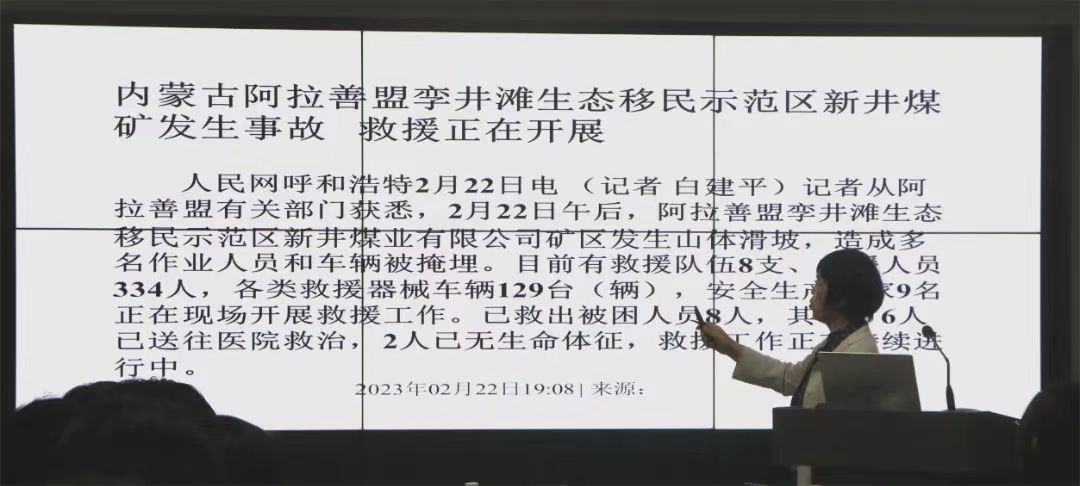 内蒙古阿拉善盟孪井滩生态移民示范区新井煤
矿发生事故 救援正在开展
人民网呼和浩特2月22日电 （记者 白建平）记者从阿
拉善盟有关部门获悉，2月22日午后，阿拉善盟孪井滩生态
移民示范区新井煤业有限公司矿区发生山体滑坡，造成多
名作业人员和车辆被掩埋。目前有救援队伍8支、 人员
334人，各类救援器械车辆129台（辆），安全生 家9名
正在现场开展救援工作。已救出被困人员8人，其 6人
已送往医院救治，2人已无生命体征，救援工作正 续进
行中。
2023年02月22日19:08 | 来源：